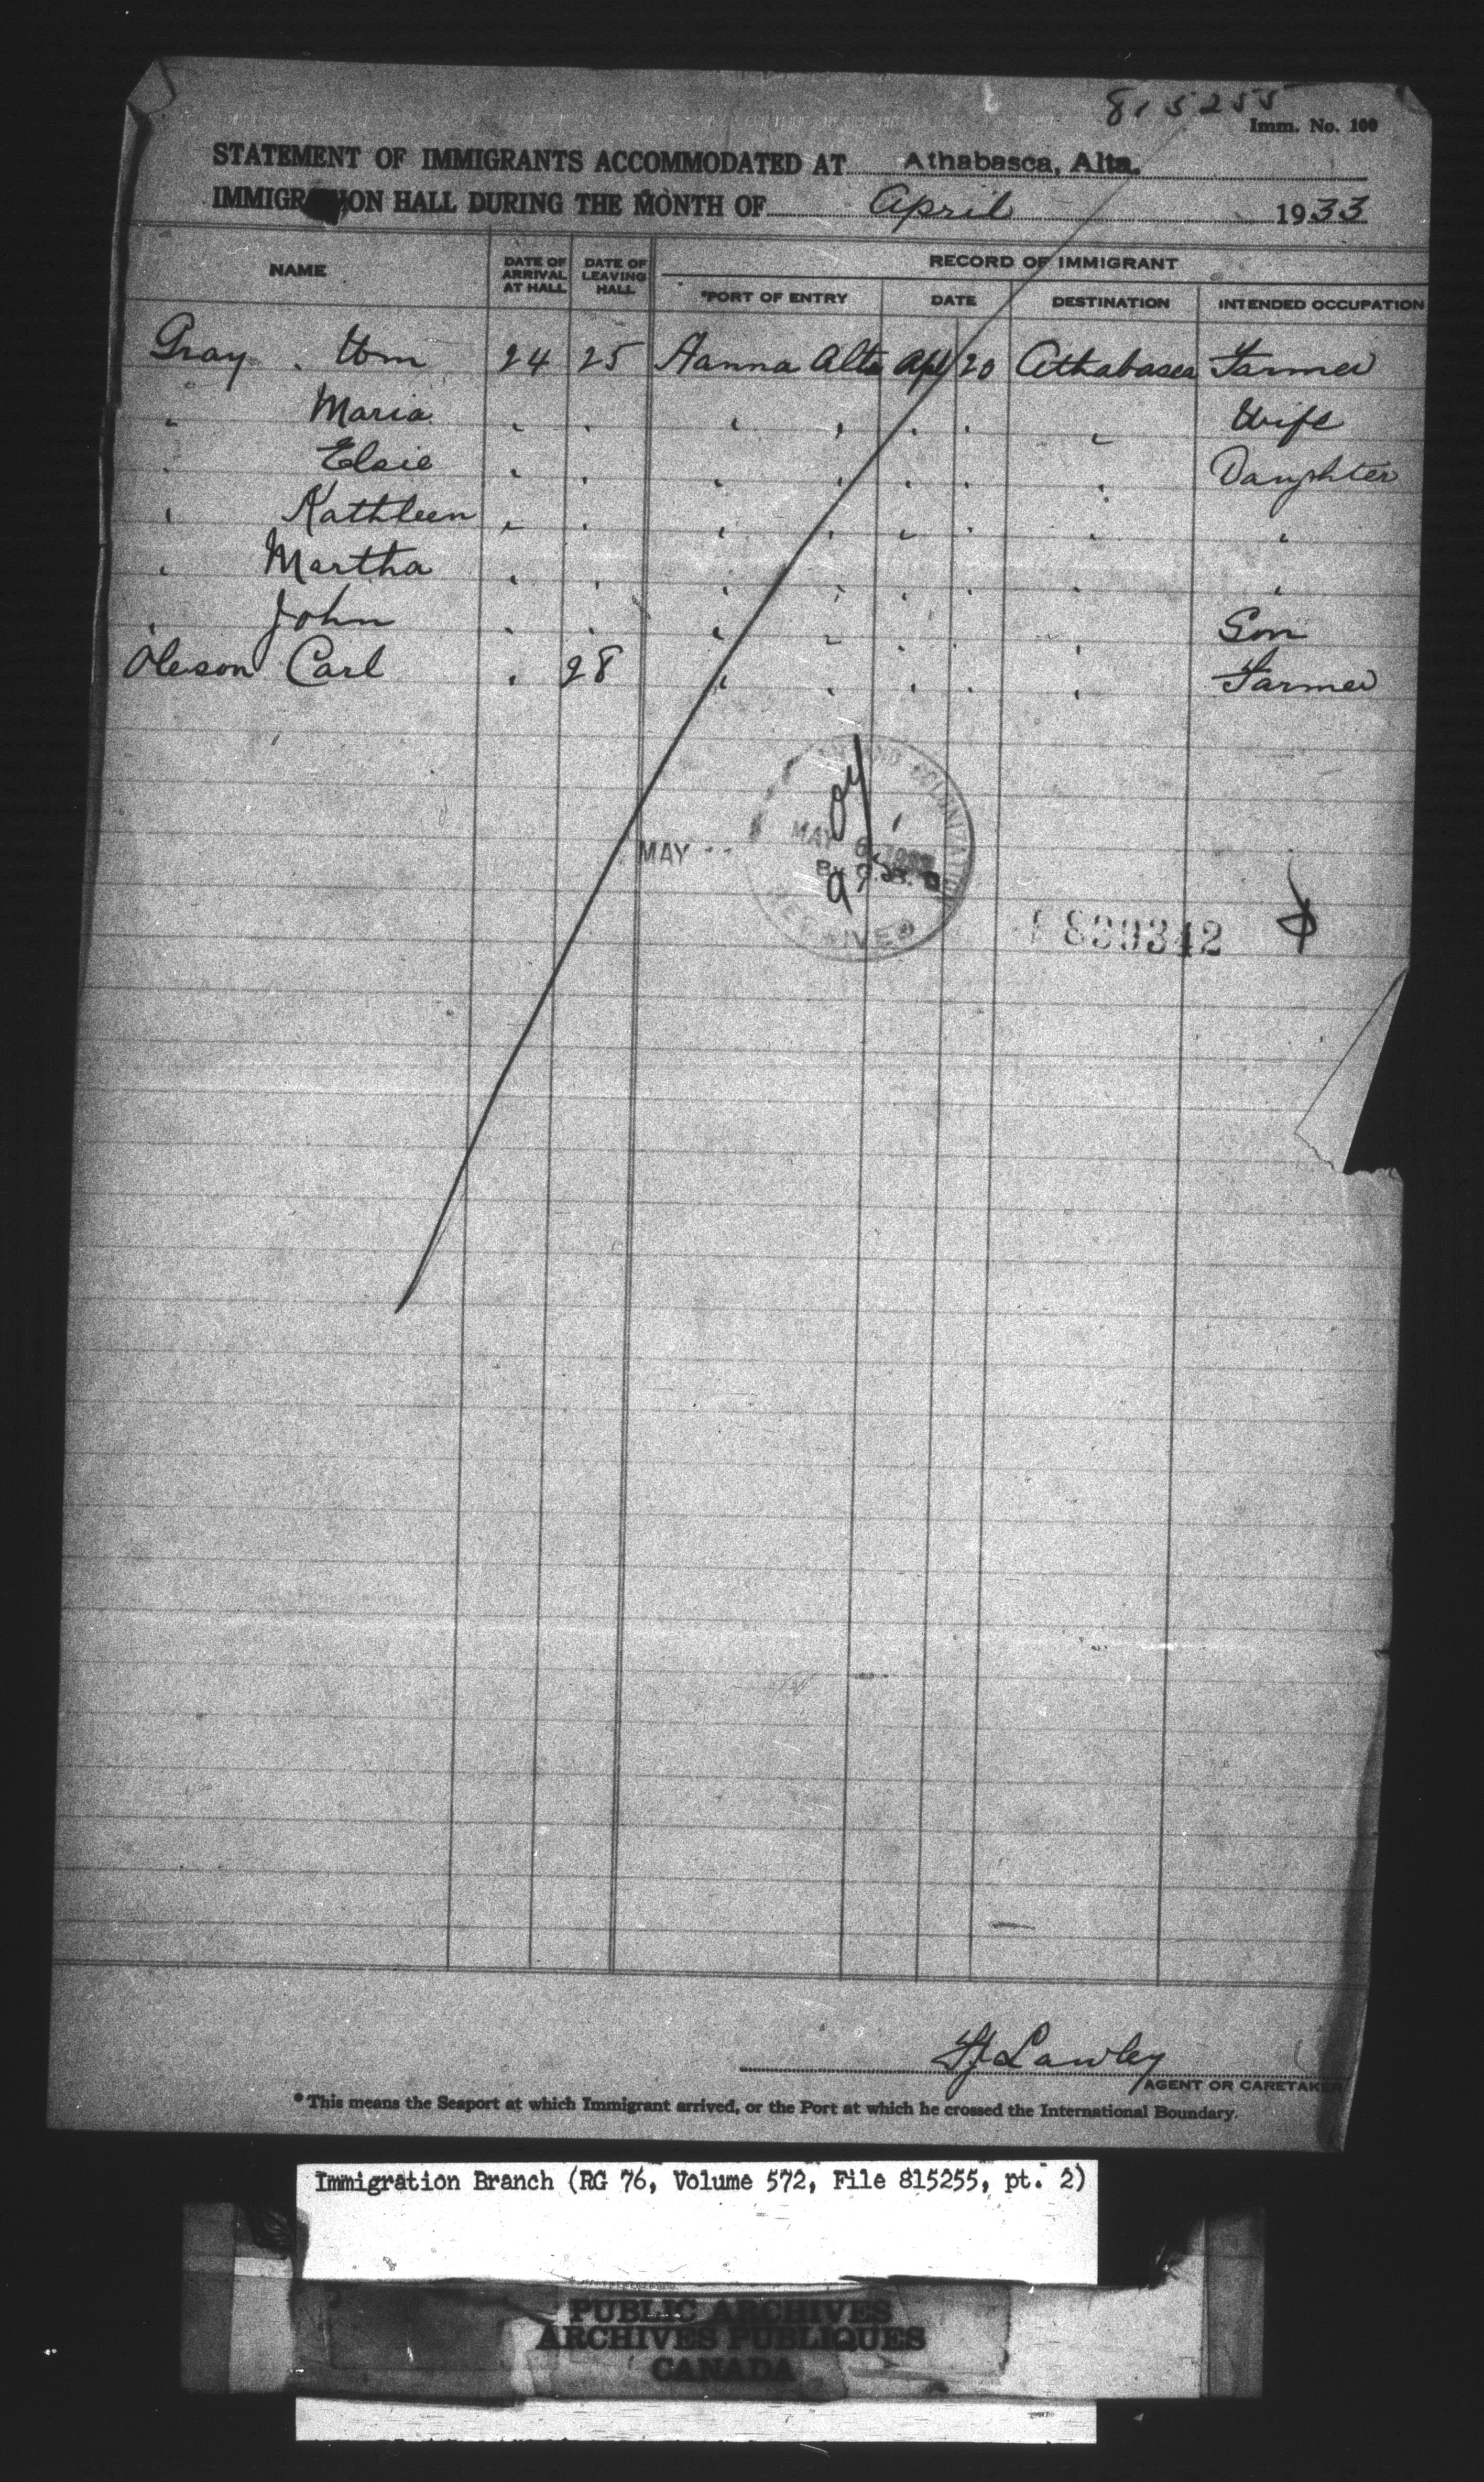 815255
Imm. No. 100
STATEMENT OF IMMIGRANTS ACCOMMODATED AT Athabasca, Alta.
IMMIGRATION HALL DURING THE MONTH OF April 1933
NAME DATE OF ARRIVAL AT HALL DATE OF LEAVING HALL RECORD OF IMMIGRANT
*PORT OF ENTRY DATE DESTINATION INTENDED OCCUPATION
Gray Wm 24 25 Hanna Alta Apl 20 Athabasca Farmer
" Maria " " " " " " " Wife
" Elsie " " " " " " " Daughter
" Kathleen " " " " " " " "
" Martha " " " " " " " "
" John " " " " " " " Son
Oleson Carl " 28 " " " " " Farmer
AND COLONIZATION
MAY
MAY 6
RECEIVED
839342
Lawley
AGENT OR CARETAKER
*This means the Seaport at which Immigrant arrived, or the Port at which he crossed the International Boundary.
Immigration Branch (RG 76, Volume 572, File 815255, pt. 2)
PUBLIC ARCHIVES
ARCHIVES PUBLIQUES
CANADA